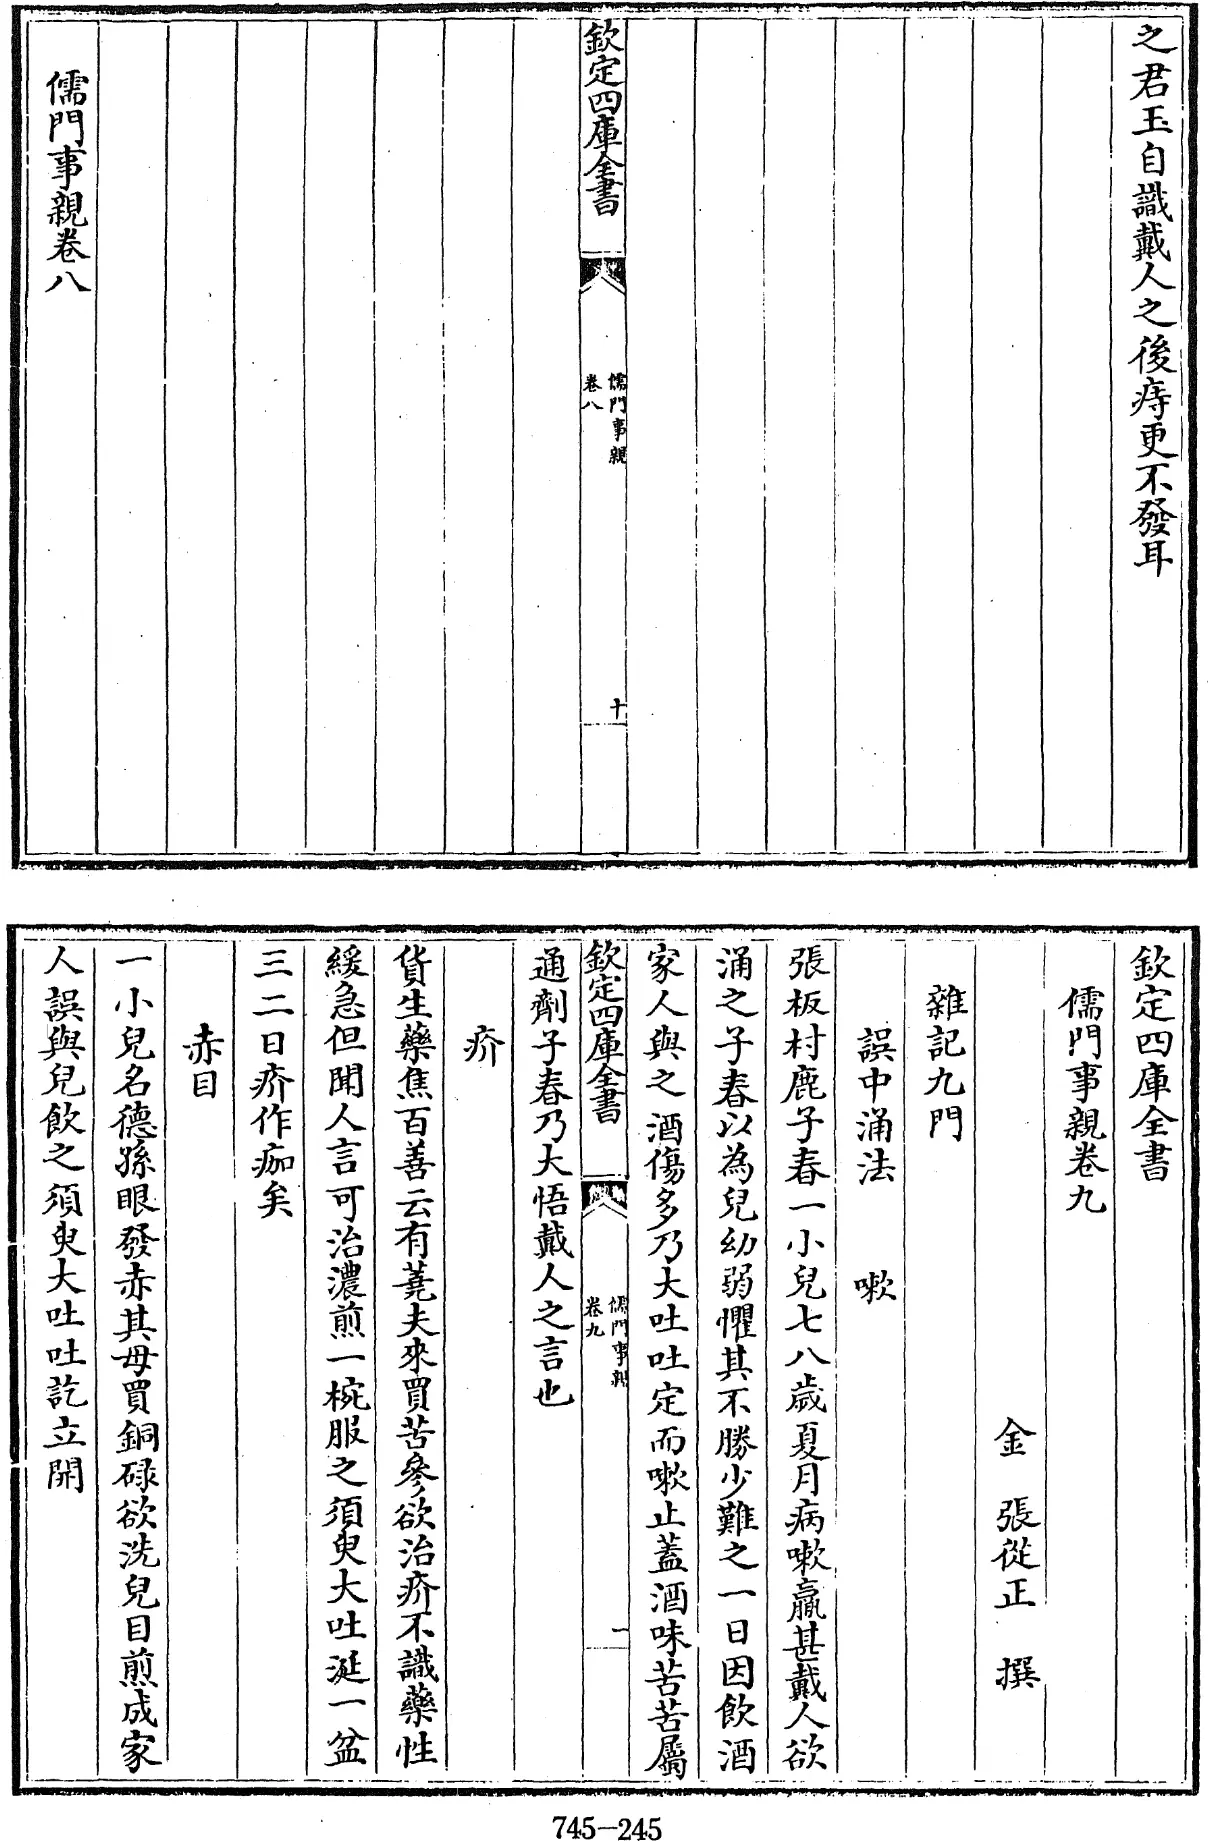 之君玉自識戴人之後痔更不發耳
欽定四庫全書
儒門事親
卷八
十
儒門事親卷八
欽定四庫全書
儒門事親卷九
金 張從正 撰
雜記九門
誤中涌法 嗽
張板村鹿子春一小兒七八歲夏月病嗽羸甚戴人欲
涌之子春以為兒幼弱懼其不勝少難之一日因飲酒
家人與之酒傷多乃大吐吐定而嗽止蓋酒味苦苦屬
欽定四庫全書
儒門事親
卷九
一
通劑子春乃大悟戴人之言也
疥
貨生藥焦百善云有蕘夫來買苦參欲治疥不識藥性
緩急但聞人言可治濃煎一椀服之須臾大吐涎一盆
三二日疥作痂矣
赤目
一小兒名德孫眼發赤其母買銅碌欲洗兒目煎成家
人誤與兒飲之須臾大吐吐訖立開
745-245